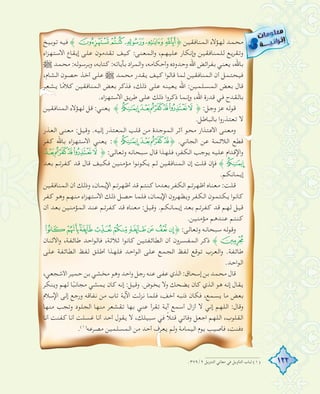 معلومات إثرائية
محمد لهؤلاء المنافقين ﴿ أَبِاللَّهِ وَآيَاتِهِ وَرَسُولِهِ كُنتُمْ تَسْتَهْزِئُونَ ﴾ فيه توبيخ
وتقريع للمنافقين وإنكار عليهم، والمعنى: كيف تقدمون على إيقاع الاستهزاء
بالله، يعني بفرائض الله وحدوده وأحكامه، والمراد بآياته: كتابه، وبرسوله: محمد ﷺ
فيحتمل أن المنافقين لما قالوا كيف يقدر محمد ﷺ على أخذ حصون الشام،
قال بعض المسلمين: الله يعينه على ذلك، فذكر بعض المنافقين كلامًا يشعر
بالقدح في قدرة الله، وإنما ذكروا ذلك على طريق الاستهزاء.
قوله عز وجل: ﴿ لَا تَعْتَذِرُوا قَدْ كَفَرْتُم بَعْدَ إِيمَانِكُمْ ﴾ يعني: قل لهؤلاء المنافقين
لا تعتذروا بالباطل.
ومعنى الاعتذار محو أثر الموجدة من قلب المعتذر إليه. وقيل: معنى العذر
قطع اللائمة عن الجاني. ﴿ قَدْ كَفَرْتُم بَعْدَ إِيمَانِكُمْ ﴾: يعني الاستهزاء بالله كفر
والإقدام عليه يوجب الكفر، فلهذا قال سبحانه وتعالى: ﴿ لَا تَعْتَذِرُوا قَدْ كَفَرْتُم بَعْدَ
إِيمَانِكُمْ ﴾ فإن قلت إن المنافقين لم يكونوا مؤمنين فكيف قال قد كفرتم بعد
إيمانكم.
قلت: معناه أظهرتم الكفر بعدما كنتم قد أظهرتم الإيمان، وذلك أن المنافقين
كانوا يكتمون الكفر ويظهرون الإيمان، فلما حصل ذلك الاستهزاء منهم وهو كفر
قيل لهم قد كفرتم بعد إيمانكم. وقيل: معناه قد كفرتم عند المؤمنين بعد أن
كنتم عندهم مؤمنين.
وقوله سبحانه وتعالى: ﴿ إِن نَّعْفُ عَن طَائِفَةٍ مِّنكُمْ نُعَذِّبْ طَائِفَةً بِأَنَّهُمْ كَانُوا
مُجْرِمِينَ ﴾ ذكر المفسرون أن الطائفتين كانوا ثلاثة، فالواحد طائفة، والاثنان
طائفة. والعرب توقع لفظ الجمع على الواحد فلهذا أطلق لفظ الطائفة على
الواحد.
قال محمد بن إسحاق: الذي عفى عنه رجل واحد وهو مخشي بن حمير الأشجعي،
يقال إنه هو الذي كان يضحك ولا يخوض. وقيل: إنه كان يمشي مجانبًا لهم وينكر
بعض ما يسمع، فكان ذنبه أخف، فلما نزلت الآية تاب من نفاقه ورجع إلى الإسلام
وقال: اللهم إني لا أزال أسمع آية تقرأ عني بها تقشعر منها الجلود وتجب منها
القلوب، اللهم اجعل وفاتي قتلًا في سبيلك، لا يقول أحد أنا غسلت أنا كفنت أنا
دفنت، فأصيب يوم اليمامة ولم يعرف أحد من المسلمين مصرعه
(١) لباب التأويل في معاني التنزيل
١٢٢